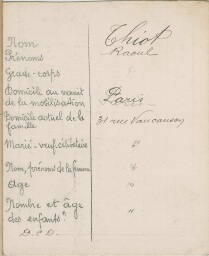 Thiot
Nom
Raoul
Prénoms
Grade-corps
Domicile au moment
de la mobilisation
Paris
Domicile actuel de la
famille
31 rue Vaucanson
Marié-veuf-célibataire "
Nom, prénoms de la femme "
Age "
Nombre et âge
des enfants "
D.C.D.